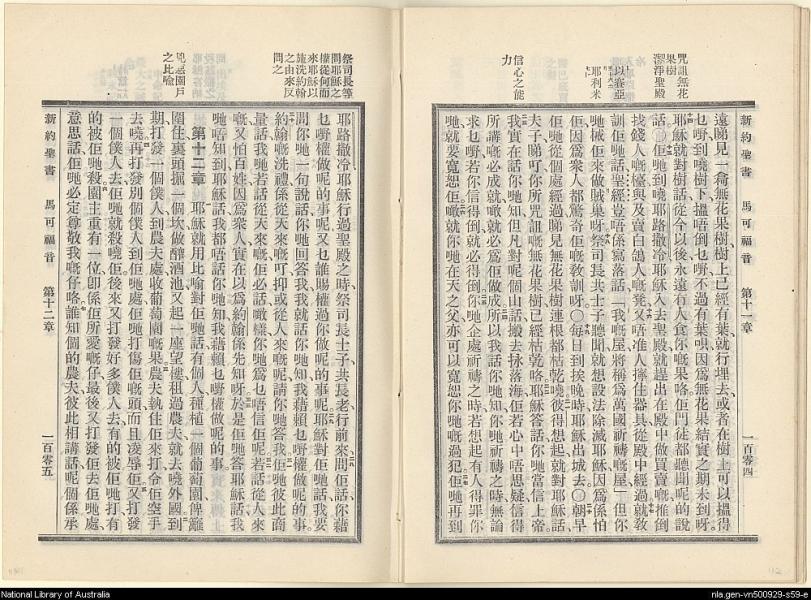 新約聖書 馬可福音 第十一章 一百零四
咒詛無花
果樹
潔淨聖殿
以賽亞
耶利米
信心之能
力
遠睇見一㪐無花果樹樹上已經有葉就行埋去或者在樹上可以搵得
乜嘢到嘵樹下搵唔倒乜嘢不過有葉唄因爲無花果結實之期未到呀
耶穌就對樹話從今以後永遠有人食你嘅果咯佢門徒都聽聞呢的說
話○佢哋到嘵耶路撒冷耶穌入去聖殿就趕出在殿中做買賣嘅推倒
找錢人嘅檯與及賣白鴿人嘅凳又唔准人擰住器具從殿中經過就敎
訓佢哋話聖經豈唔係寫落話「我嘅屋將稱爲萬國祈禱嘅屋」但你
哋椷佢來做賊巢呀祭司長共士子聽聞就想設法除滅耶穌因爲係怕
佢因爲衆人都驚奇佢嘅敎訓呀○每日到挨晚時耶穌出城去○朝早
佢哋從個處經過睇見無花果樹連根都枯乾嘵彼得想起就對耶穌話
夫子睇吓你所咒詛嘅無花果樹已經枯乾咯耶穌答話你哋當信上帝
我實在話你哋知但凡對呢個山話搣去抌落海佢若心中唔思疑信得
所講嘅必成就噉就必爲佢做成所以我話你哋知你哋祈禱之時無論
求乜嘢若你信得倒就必得倒你哋企處祈禱之時若想起有人得罪你
哋就要寬恕佢噉就你哋在天之父亦可以寬恕你哋嘅過犯佢哋再到
祭司長等
問耶穌之
權從何而
來耶穌以
施洗約翰
之由來反
問之
兇惡園戶
之比喻
耶路撒冷耶穌行過聖殿之時祭司長士子共長老行前來問佢話你藉
乜嘢權做呢的事呢又乜誰賜權過你做呢的事呢耶穌對佢哋話我要
問你哋一句說話你哋回答我我就話你哋知我藉賴乜嘢權做呢的事
約翰嘅洗禮係從天來嘅吖抑或從人來嘅呢請你哋答我佢哋彼此商
量話我哋若話從天來嘅佢必話噉樣你哋爲乜唔信佢呢若話從人來
嘅又怕百姓因爲衆人實在以爲約翰係先知呀於是佢哋答耶穌話我
哋唔知到耶穌話我都唔話你哋知我藉賴乜嘢權做呢的事
第十二章 耶穌就用比喻對佢哋話有個人種植一個葡萄園俾籬
圍住裏頭掘一個坎做醡酒池又起一座望樓租過農夫就去嘵外國到
期打發一個僕人到農夫處收葡萄園嘅果農夫執住佢來打令佢空手
去嘵再打發別個僕人到佢哋處佢哋打傷佢嘅頭而且凌辱佢又打發
一個僕人去佢哋就殺嘵佢後來又打發好多僕人去有的被佢哋打有
的被佢哋殺園主重有一位卽係佢所愛嘅仔最後又打發佢去佢哋處
意思話佢哋必定尊敬我嘅仔咯誰知個的農夫彼此相講話呢個係承
新約聖書 馬可福音 第十二章 一百零五
National Library of Australia
nla.gen-vn500929-s59-e